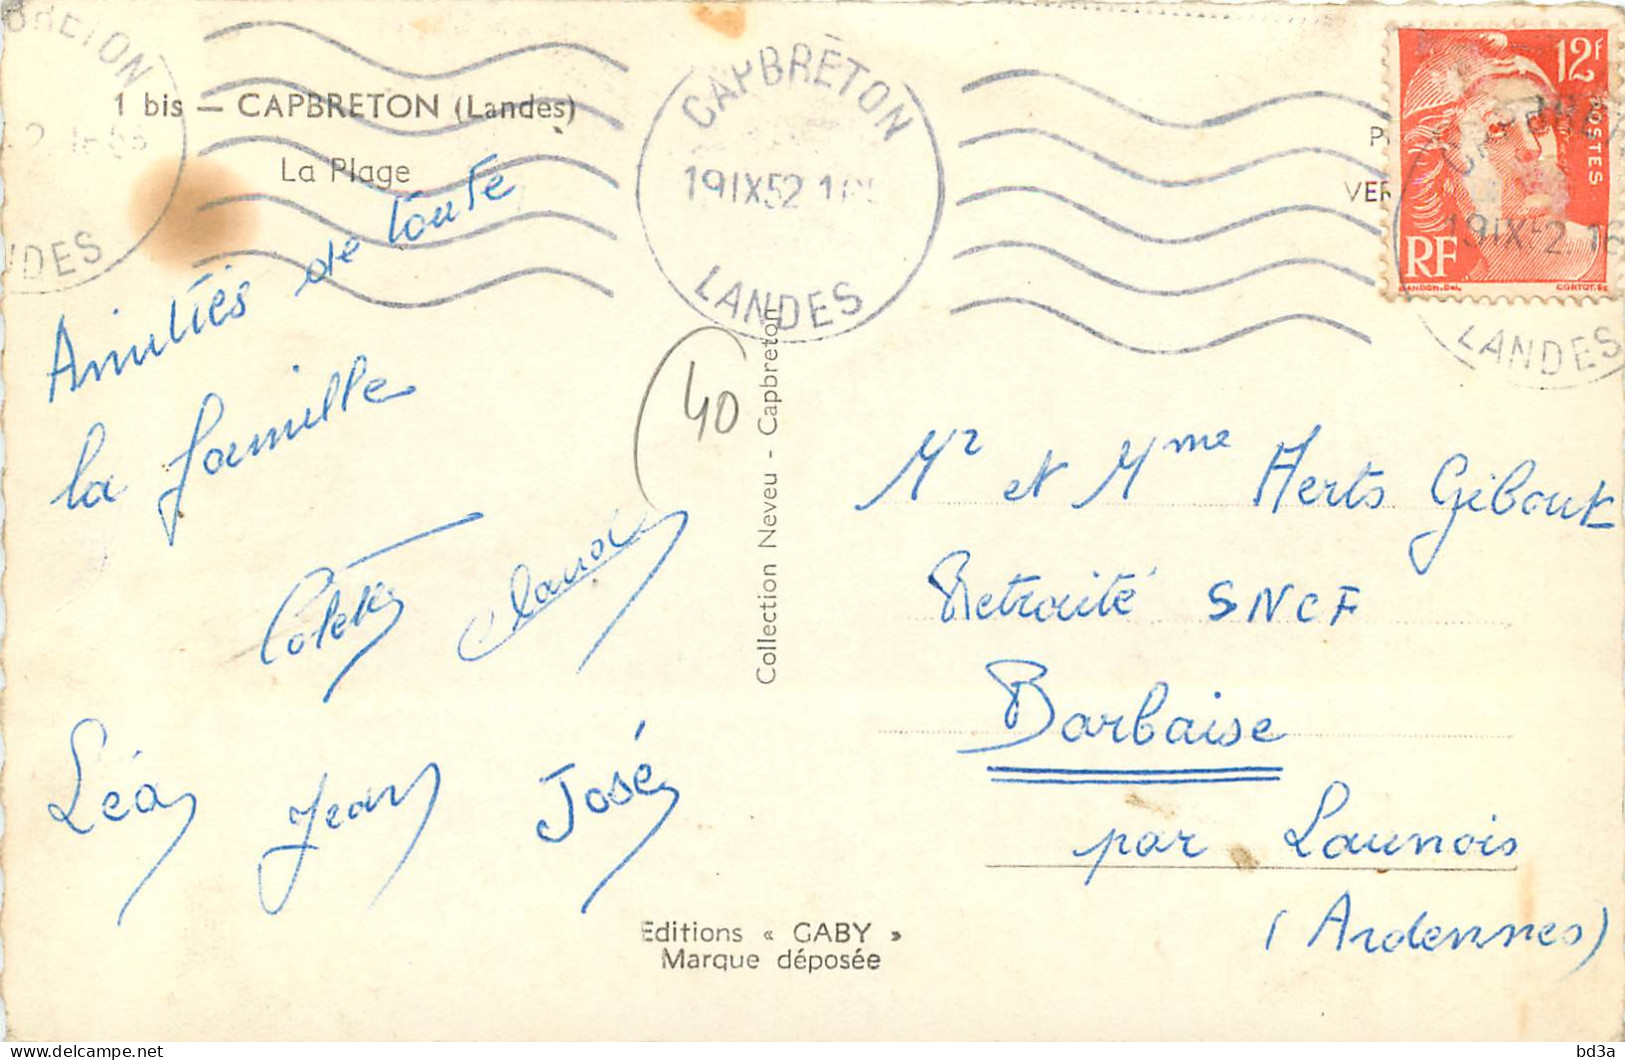 1 bis — CAPBRETON (Landes)
La Plage
CAPBRETON
19 IX 52
LANDES
12F
POSTES
RF
19 IX 52 16
LANDES
Amitiés de toute
la famille
Colette Claude
Léa Jean José
40
Collection Neveu - Capbreton
Mr et Mme Herts Gibout
Retraité SNCF
Barbaise
par Launois
(Ardennes)
Editions « GABY »
Marque déposée
bd3a